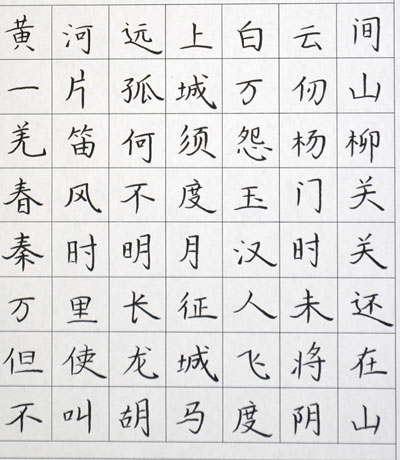 黄河远上白云间
一片孤城万仞山
羌笛何须怨杨柳
春风不度玉门关
秦时明月汉时关
万里长征人未还
但使龙城飞将在
不叫胡马度阴山